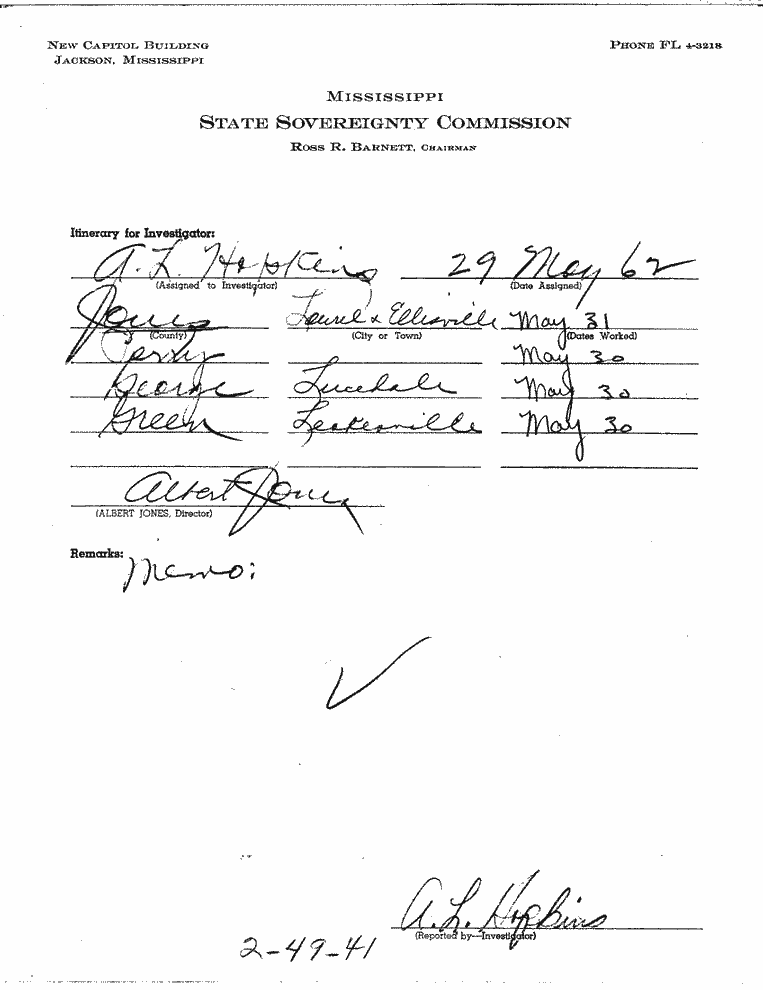 NEW CAPITOL BUILDING
JACKSON, MISSISSIPPI
PHONE FL 4-3218
MISSISSIPPI
STATE SOVEREIGNTY COMMISSION
ROSS R. BARNETT, CHAIRMAN
Itinerary for Investigator:
A. L. Hopkins 29 May 62
(Assigned to Investigator) (Date Assigned)
Jones Laurel & Ellisville May 31
(County) (City or Town) (Dates Worked)
Perry May 30
George Lucedale May 30
Green Leakesville May 30
Albert Jones
(ALBERT JONES, Director)
Remarks:
Memo:
A. L. Hopkins
(Reported by—Investigator)
2-49-41